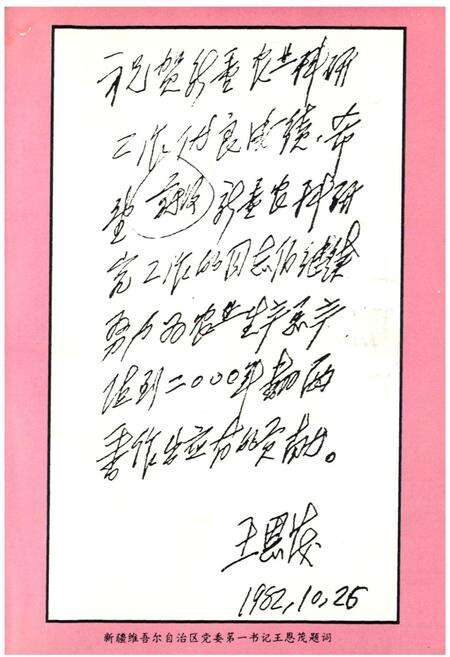 祝贺新疆农业科研
工作优良成绩，希
望新疆农科研
究工作的同志们继续
努力为农业生产总产
值到二〇〇〇年翻两
番作出应有的贡献。
王恩茂
1982,10,26
新疆维吾尔自治区党委第一书记王恩茂题词